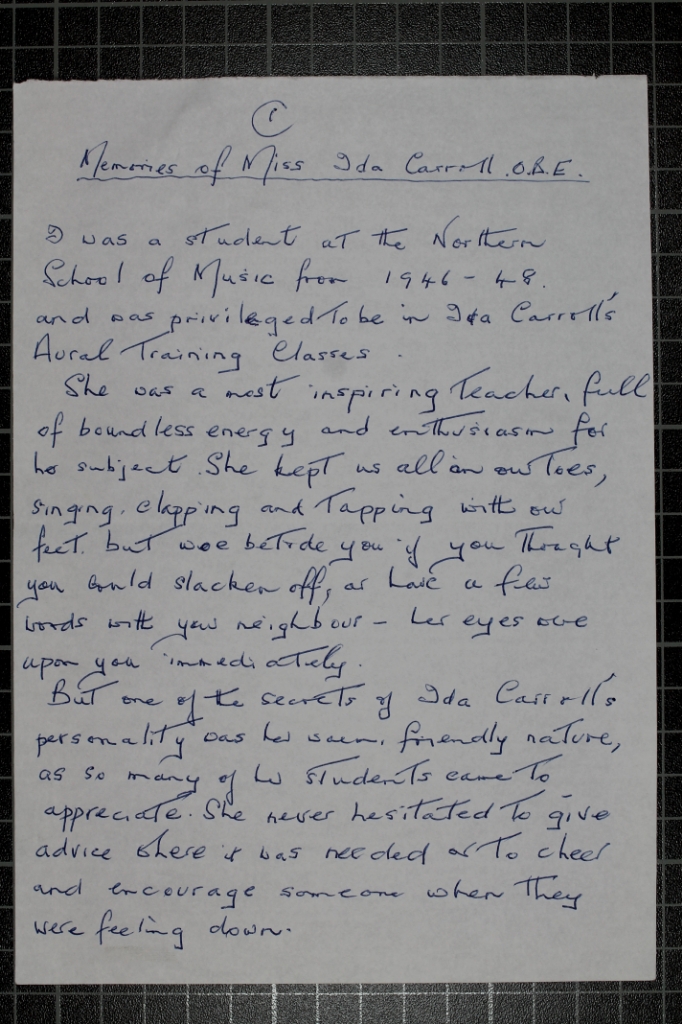 1
Memories of Miss Ida Carroll. O.B.E.
I was a student at the Northern
School of Music from 1946 - 48.
and was privileged to be in Ida Carroll's
Aural Training Classes.
She was a most inspiring teacher, full
of boundless energy and enthusiasm for
her subject. She kept us all on our toes,
singing, clapping and tapping with our
feet. but woe betide you if you thought
you could slacken off, or have a few
words with your neighbour - her eyes were
upon you immediately.
But one of the secrets of Ida Carroll's
personality was her warm, friendly nature,
as so many of her students came to
appreciate. She never hesitated to give
advice where it was needed or to cheer
and encourage someone when they
were feeling down.